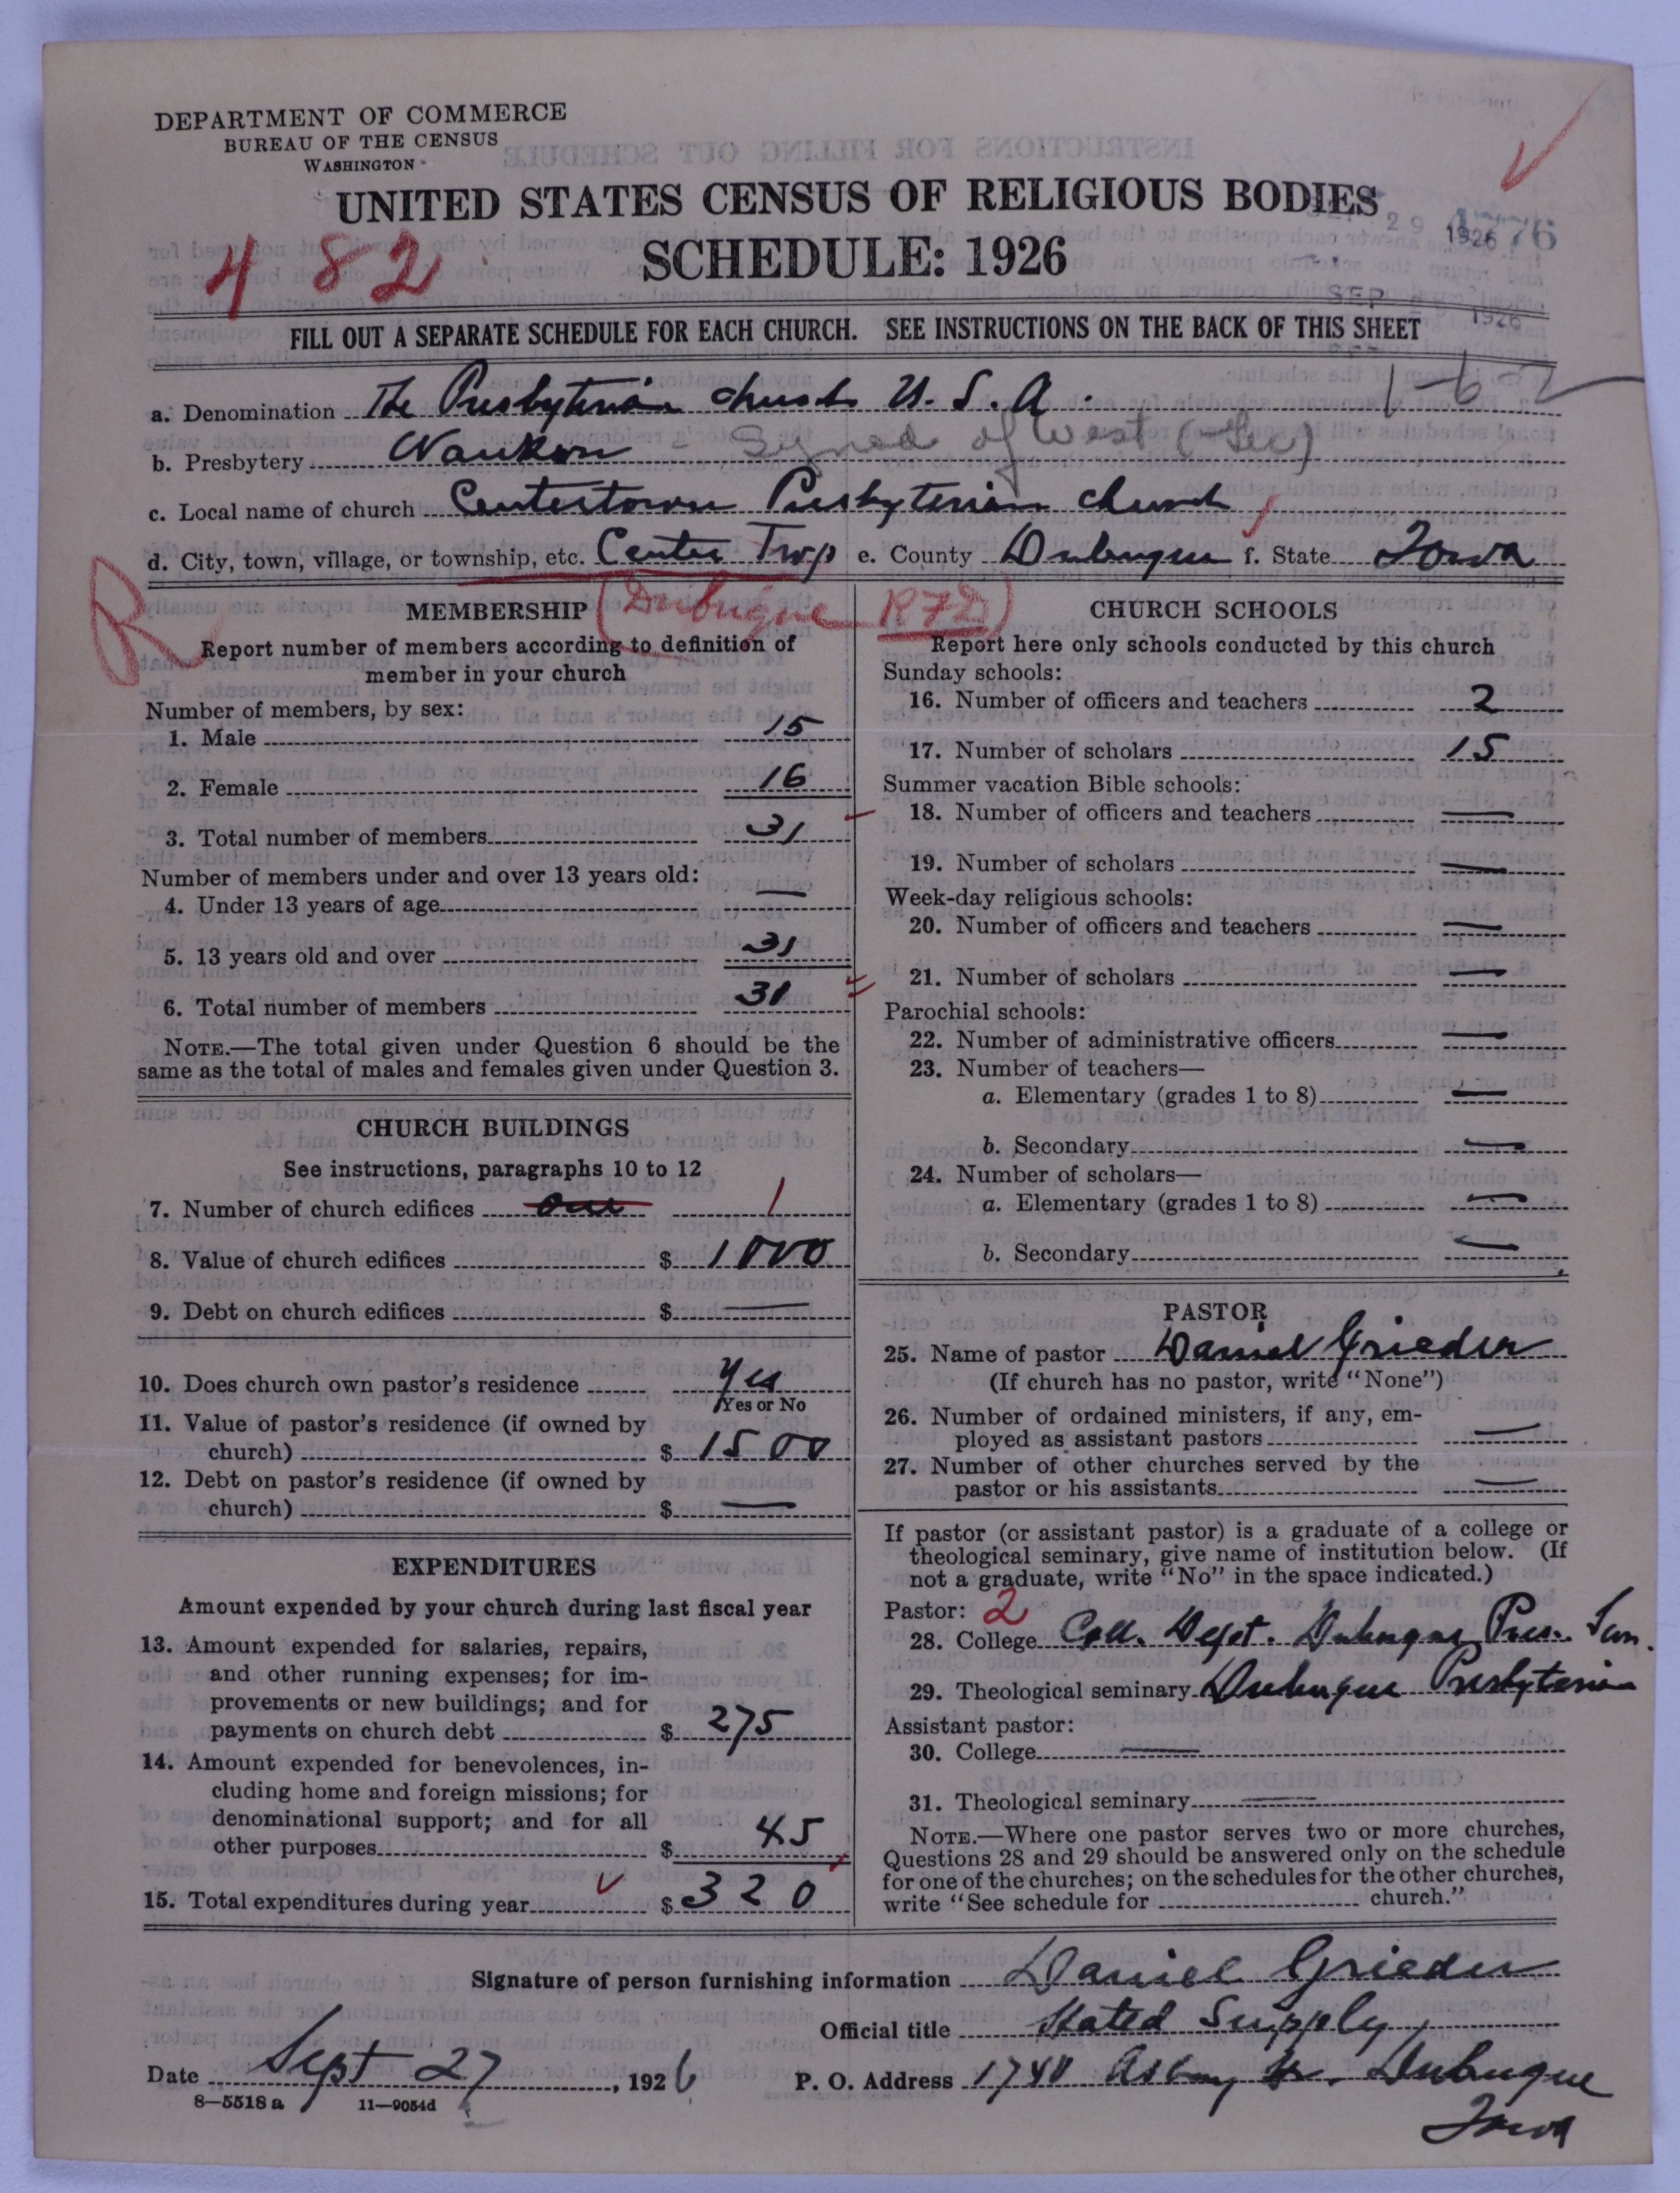 DEPARTMENT OF COMMERCE
BUREAU OF THE CENSUS
WASHINGTON
UNITED STATES CENSUS OF RELIGIOUS BODIES
SCHEDULE: 1926
482
29 1926
4776
SEP 1926
FILL OUT A SEPARATE SCHEDULE FOR EACH CHURCH. SEE INSTRUCTIONS ON THE BACK OF THIS SHEET
a. Denomination The Presbyterian church U. S. A. 1-6-2
b. Presbytery Waukon - Synod of West (Ger)
c. Local name of church Centertown Presbyterian church
d. City, town, village, or township, etc. Center Twp e. County Dubuque f. State Iowa
(Dubuque RFD)
R
MEMBERSHIP
Report number of members according to definition of
member in your church
Number of members, by sex:
1. Male 15
2. Female 16
3. Total number of members 31
Number of members under and over 13 years old:
4. Under 13 years of age —
5. 13 years old and over 31
6. Total number of members 31
NOTE.—The total given under Question 6 should be the
same as the total of males and females given under Question 3.
CHURCH BUILDINGS
See instructions, paragraphs 10 to 12
7. Number of church edifices one 1
8. Value of church edifices $ 1000
9. Debt on church edifices $ —
10. Does church own pastor's residence Yes
Yes or No
11. Value of pastor's residence (if owned by
church) $ 1500
12. Debt on pastor's residence (if owned by
church) $ —
EXPENDITURES
Amount expended by your church during last fiscal year
13. Amount expended for salaries, repairs,
and other running expenses; for im-
provements or new buildings; and for
payments on church debt $ 275
14. Amount expended for benevolences, in-
cluding home and foreign missions; for
denominational support; and for all
other purposes $ 45
15. Total expenditures during year $ 320
CHURCH SCHOOLS
Report here only schools conducted by this church
Sunday schools:
16. Number of officers and teachers 2
17. Number of scholars 15
Summer vacation Bible schools:
18. Number of officers and teachers —
19. Number of scholars —
Week-day religious schools:
20. Number of officers and teachers —
21. Number of scholars —
Parochial schools:
22. Number of administrative officers —
23. Number of teachers—
a. Elementary (grades 1 to 8) —
b. Secondary —
24. Number of scholars—
a. Elementary (grades 1 to 8) —
b. Secondary —
PASTOR
25. Name of pastor Daniel Grieder
(If church has no pastor, write "None")
26. Number of ordained ministers, if any, em-
ployed as assistant pastors —
27. Number of other churches served by the
pastor or his assistants —
If pastor (or assistant pastor) is a graduate of a college or
theological seminary, give name of institution below. (If
not a graduate, write "No" in the space indicated.)
Pastor: 2
28. College Coll. Dept. Dubuque Pres. Sem.
29. Theological seminary Dubuque Presbyterian
Assistant pastor:
30. College —
31. Theological seminary —
NOTE.—Where one pastor serves two or more churches,
Questions 28 and 29 should be answered only on the schedule
for one of the churches; on the schedules for the other churches,
write "See schedule for church."
Signature of person furnishing information Daniel Grieder
Official title Stated Supply
Date Sept 27, 1926 P. O. Address 1740 Asbury St. Dubuque
Iowa
8—5518 a 11—9054d